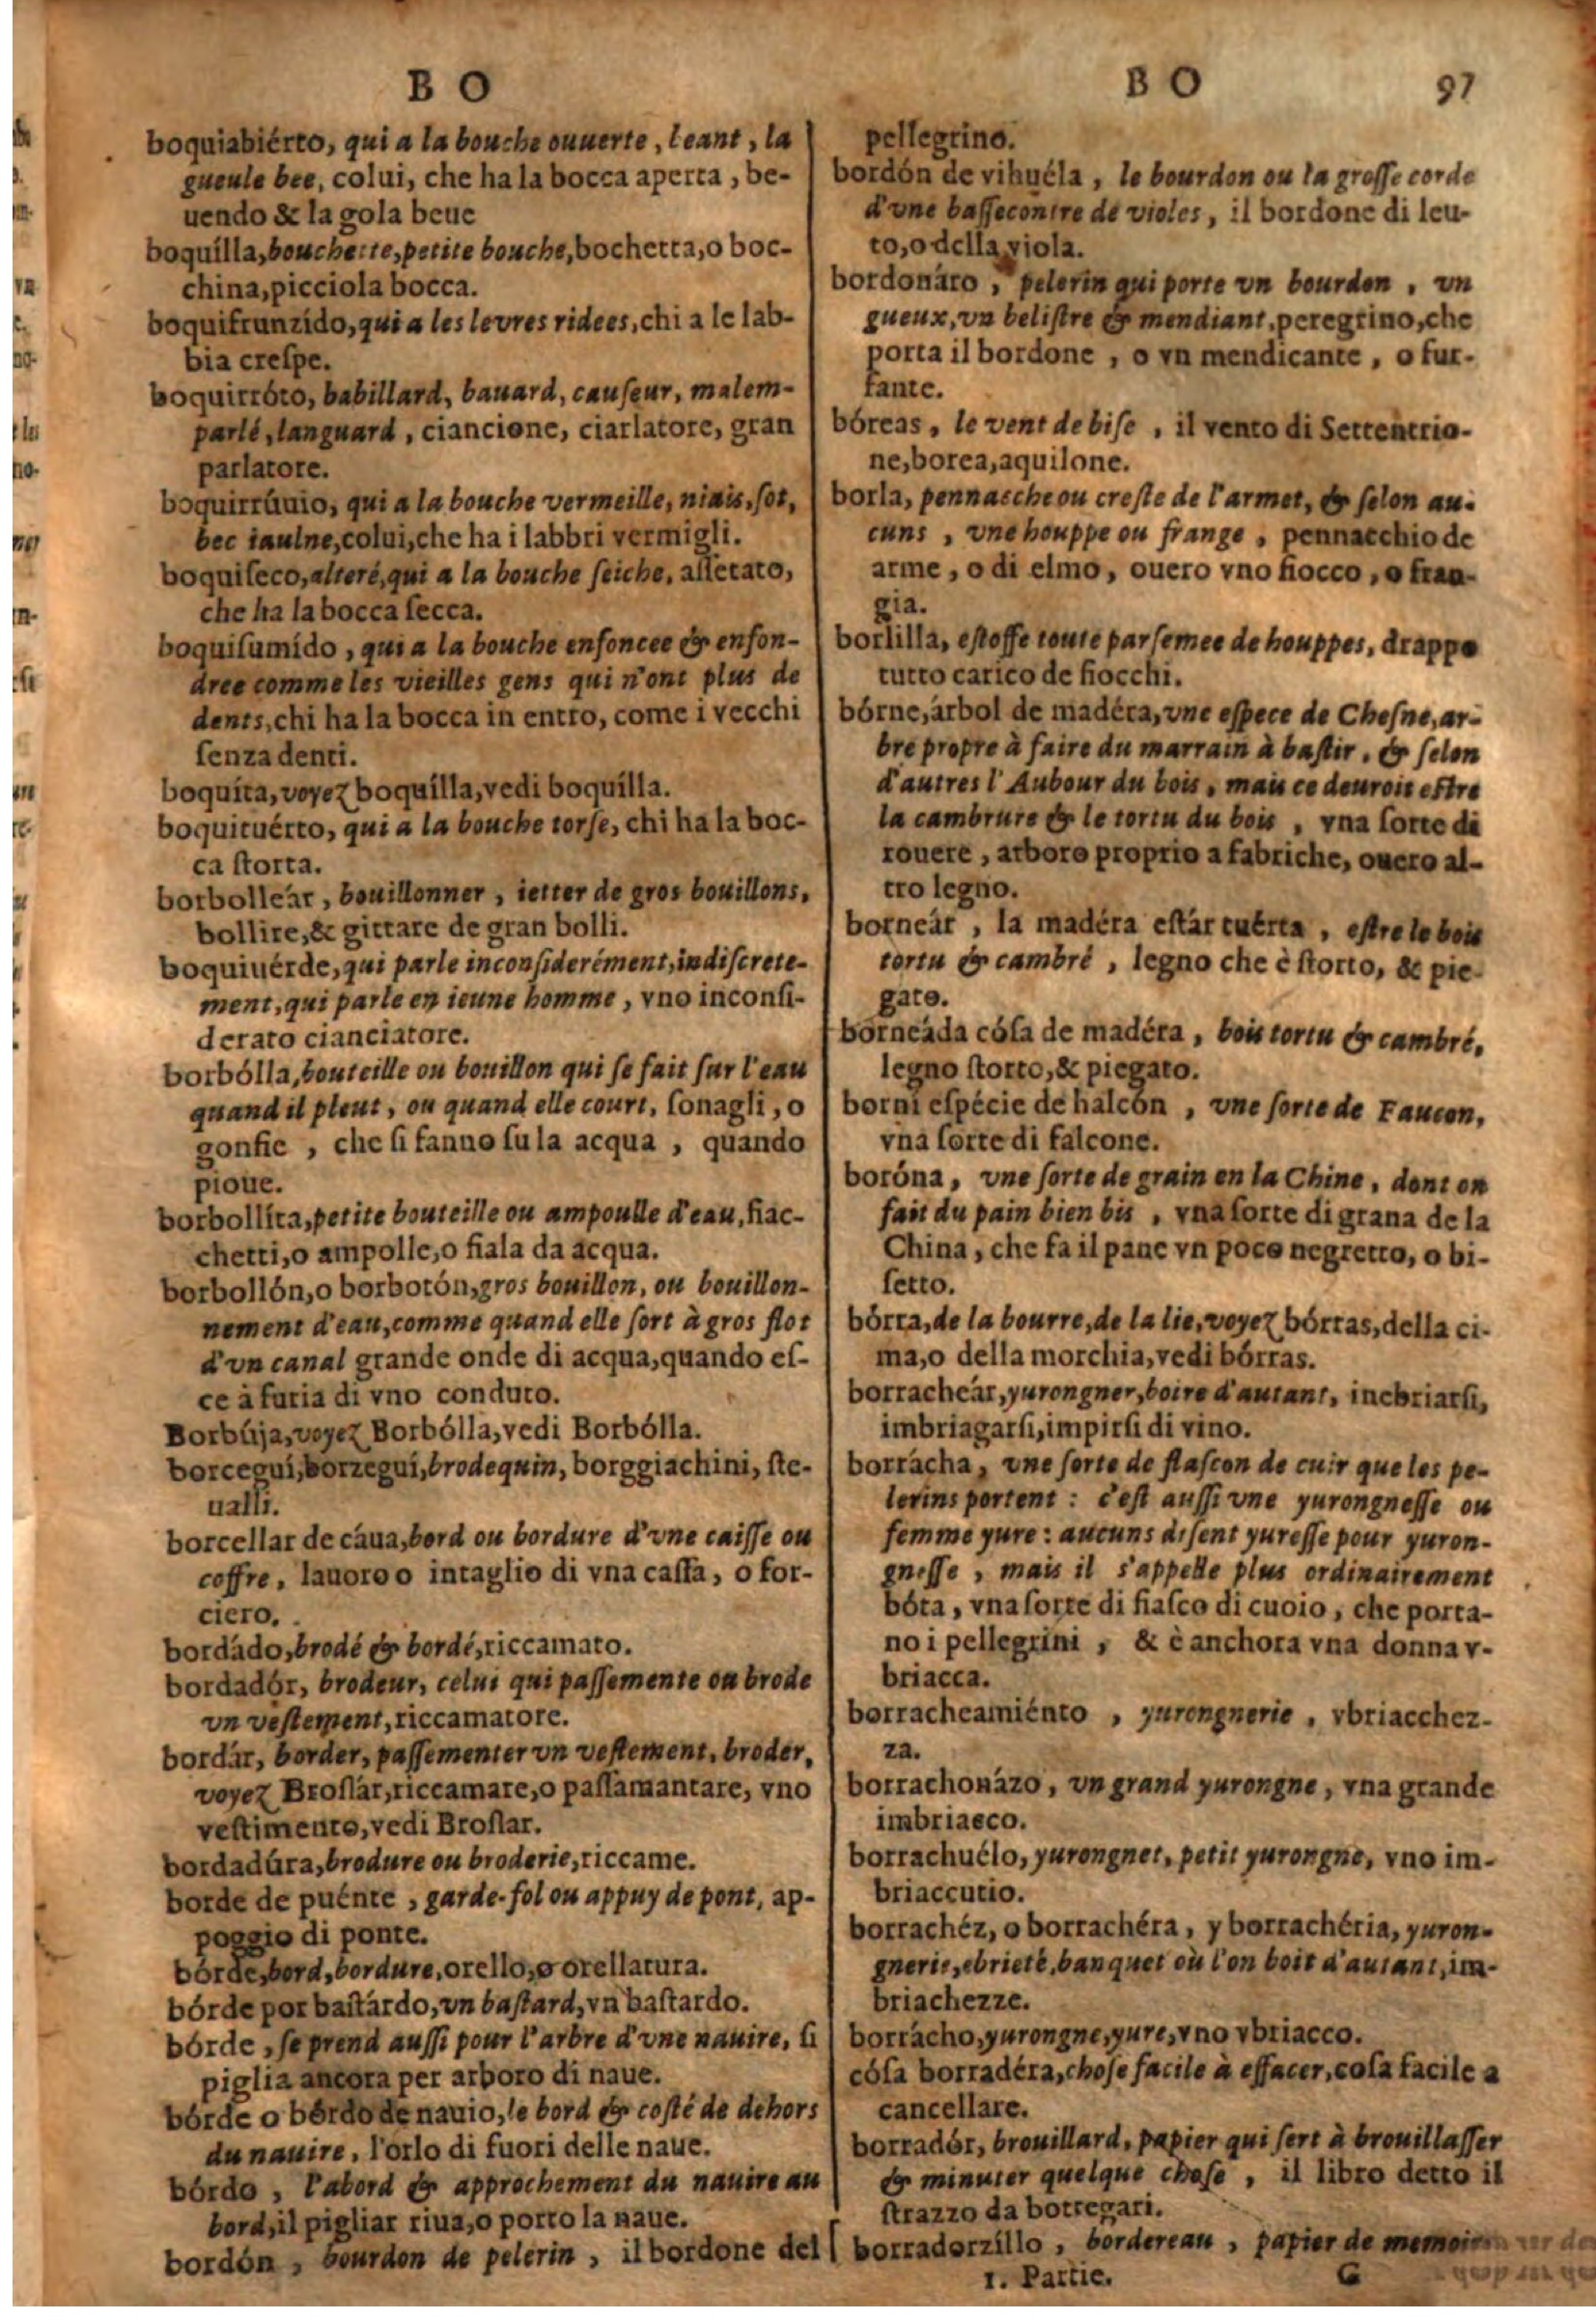 B O
boquiabiérto, qui a la bouche ouuerte, beant, la
gueule bee, colui, che ha la bocca aperta, be-
uendo & la gola beue
boquílla, bouchette, petite bouche, bochetta, o boc-
china, picciola bocca.
boquifrunzído, qui a les levres ridees, chi a le lab-
bia creſpe.
boquirróto, babillard, bauard, cauſeur, malem-
parlé, languard, ciancione, ciarlatore, gran
parlatore.
boquirrúuio, qui a la bouche vermeille, niais, ſot,
bec iaulne, colui, che ha i labbri vermigli.
boquiſeco, alteré, qui a la bouche ſeiche, aſſetato,
che ha la bocca ſecca.
boquiſumído, qui a la bouche enfoncee & enfon-
dree comme les vieilles gens qui n'ont plus de
dents, chi ha la bocca in entro, come i vecchi
ſenza denti.
boquíta, voyez boquílla, vedi boquílla.
boquituérto, qui a la bouche torſe, chi ha la boc-
ca ſtorta.
borbolleár, bouillonner, ietter de gros bouillons,
bollire, & gittare de gran bolli.
boquiuérde, qui parle inconſiderément, indiſcrete-
ment, qui parle en ieune homme, vno inconſi-
derato cianciatore.
borbólla, bouteille ou bouillon qui ſe fait ſur l'eau
quand il pleut, ou quand elle court, ſonagli, o
gonfie, che ſi fanno ſu la acqua, quando
pioue.
borbollíta, petite bouteille ou ampoulle d'eau, fiac-
chetti, o ampolle, o fiala da acqua.
borbollón, o borbotón, gros bouillon, ou bouillon-
nement d'eau, comme quand elle ſort à gros flot
d'vn canal grande onde di acqua, quando eſ-
ce à furia di vno conduto.
Borbúja, voyez Borbólla, vedi Borbólla.
borceguí, borzeguí, brodequin, borggiachini, ſte-
ualli.
borcellar de cáua, bord ou bordure d'vne caiſſe ou
coffre, lauoro o intaglio di vna caſſa, o for-
ciero.
bordádo, brodé & bordé, riccamato.
bordadór, brodeur, celui qui paſſemente ou brode
vn veſtement, riccamatore.
bordár, border, paſſementer vn veſtement, broder,
voyez Broſlár, riccamare, o paſſamantare, vno
veſtimento, vedi Broſlar.
bordadúra, brodure ou broderie, riccame.
borde de puénte, garde-fol ou appuy de pont, ap-
poggio di ponte.
bórde, bord, bordure, orello, o orellatura.
bórde por baſtárdo, vn baſtard, vn baſtardo.
bórde, ſe prend auſſi pour l'arbre d'vne nauire, ſi
piglia ancora per arboro di naue.
bórde o bórdo de nauio, le bord & coſté de dehors
du nauire, l'orlo di fuori delle naue.
bórdo, l'abord & approchement du nauire au
bord, il pigliar riua, o porto la naue.
bordón, bourdon de pelerin, il bordone del
B O 97
pellegrino.
bordón de vihuéla, le bourdon ou la groſſe corde
d'vne baſſecontre de violes, il bordone di leu-
to, o della viola.
bordonáro, pelerin qui porte vn bourdon, vn
gueux, vn beliſtre & mendiant, peregrino, che
porta il bordone, o vn mendicante, o fur-
fante.
bóreas, le vent de biſe, il vento di Settentrio-
ne, borea, aquilone.
borla, pennacche ou creſte de l'armet, & ſelon au-
cuns, vne houppe ou frange, pennacchio de
arme, o di elmo, ouero vno fiocco, o fran-
gia.
borlilla, eſtoffe toute parſemee de houppes, drappo
tutto carico de fiocchi.
bórne, árbol de madéra, vne eſpece de Cheſne, ar-
bre propre à faire du marrain à baſtir, & ſelon
d'autres l'Aubour du bois, mais ce deuroit eſtre
la cambrure & le tortu du bois, vna ſorte di
rouere, arboro proprio a fabriche, ouero al-
tro legno.
borneár, la madéra eſtár tuérta, eſtre le bois
tortu & cambré, legno che è ſtorto, & pie-
gato.
borneáda cóſa de madéra, bois tortu & cambré,
legno ſtorto, & piegato.
borní eſpécie de halcón, vne ſorte de Faucon,
vna ſorte di falcone.
boróna, vne ſorte de grain en la Chine, dont on
fait du pain bien bis, vna ſorte di grana de la
China, che fa il pane vn poco negretto, o bi-
ſetto.
bórra, de la bourre, de la lie, voyez bórras, della ci-
ma, o della morchia, vedi bórras.
borracheár, yurongner, boire d'autant, inebriarſi,
imbriagarſi, impirſi di vino.
borrácha, vne ſorte de flaſcon de cuir que les pe-
lerins portent : c'eſt auſſi vne yurongneſſe ou
femme yure : aucuns diſent yureſſe pour yuron-
gneſſe, mais il s'appelle plus ordinairement
bóta, vna ſorte di fiaſco di cuoio, che porta-
no i pellegrini, & è anchora vna donna v-
briacca.
borracheamiénto, yurongnerie, vbriacchez-
za.
borrachonázo, vn grand yurongne, vna grande
imbriaeco.
borrachuélo, yurongnet, petit yurongne, vno im-
briaccutio.
borrachéz, o borrachéra, y borrachéria, yuron-
gnerie, ebrieté, banquet où l'on boit d'autant, im-
briachezze.
borrácho, yurongne, yure, vno vbriacco.
cóſa borradéra, choſe facile à effacer, coſa facile a
cancellare.
borradór, brouillard, papier qui ſert à brouillaſſer
& minuter quelque choſe, il libro detto il
ſtrazzo da bottegari.
borradorzíllo, bordereau, papier de memoire
1. Partie. G